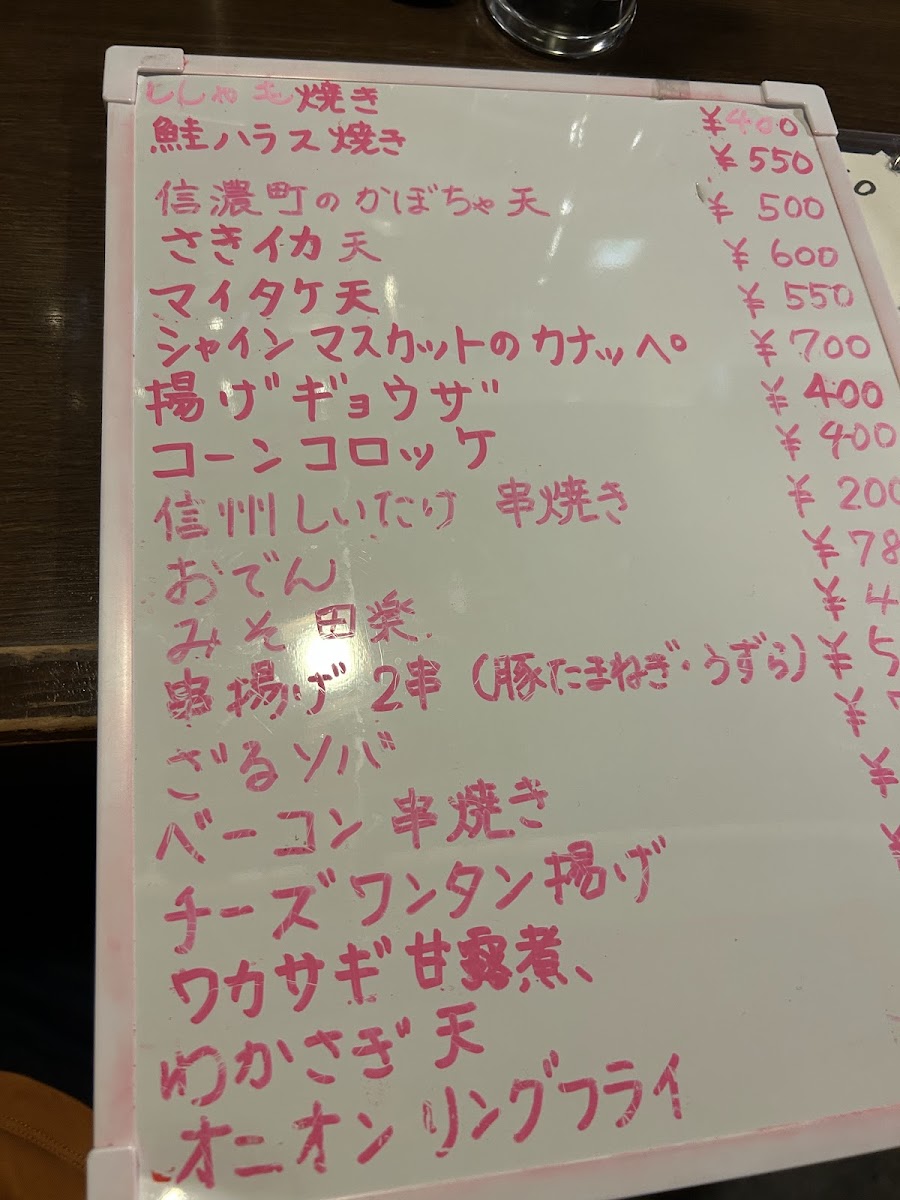 ししゃも焼き ¥400
鮭ハラス焼き ¥550
信濃町のかぼちゃ天 ¥500
さきイカ天 ¥600
マイタケ天 ¥550
シャインマスカットのカナッペ ¥700
揚げギョウザ ¥400
コーンコロッケ ¥400
信州しいたけ 串焼き ¥200
おでん ¥78
みそ田楽 ¥4
串揚げ 2串 (豚たまねぎ・うずら) ¥5
ざるソバ ¥
ベーコン串焼き ¥
チーズワンタン揚げ ¥
ワカサギ甘露煮、
わかさぎ天
オニオンリングフライ